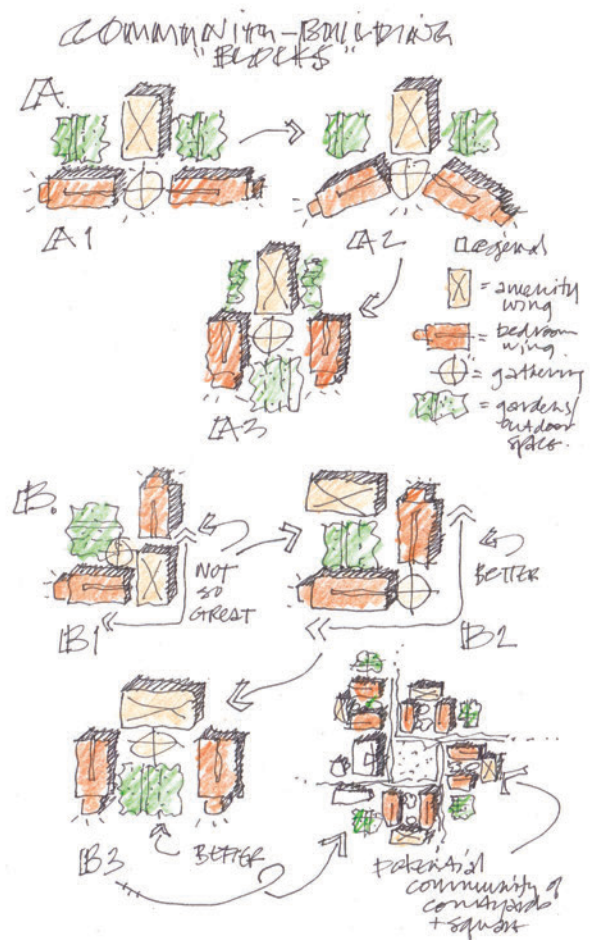 COMMUNITY-BUILDING
"BLOCKS"
A.
A1
A2
Legend
= amenity
wing
= bedroom
wing.
= gathering
= gardens/
outdoor
space.
A3
B.
NOT
SO
GREAT
BETTER
B1
B2
B3
BETTER
potential
community of
courtyards
+ square